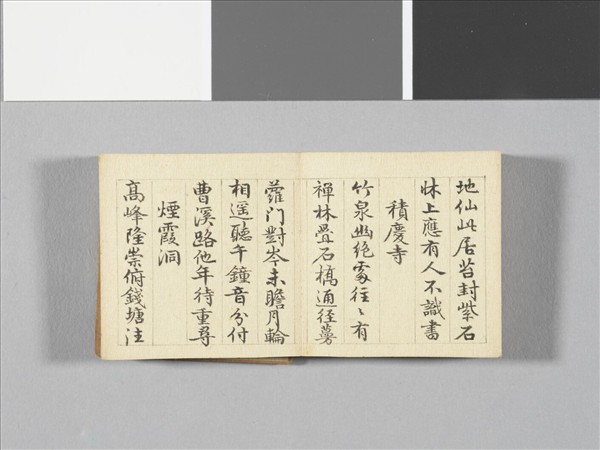 地仙此居苔封紫石
牀上應有人不識書
積慶寺
竹泉幽絕處往〻有
禪林疊石橋通徑蔓
蘿門對岑未瞻月輪
相遥聽午鐘音分付
曹溪路他年待重尋
煙霞洞
高峰隆崇俯錢塘注